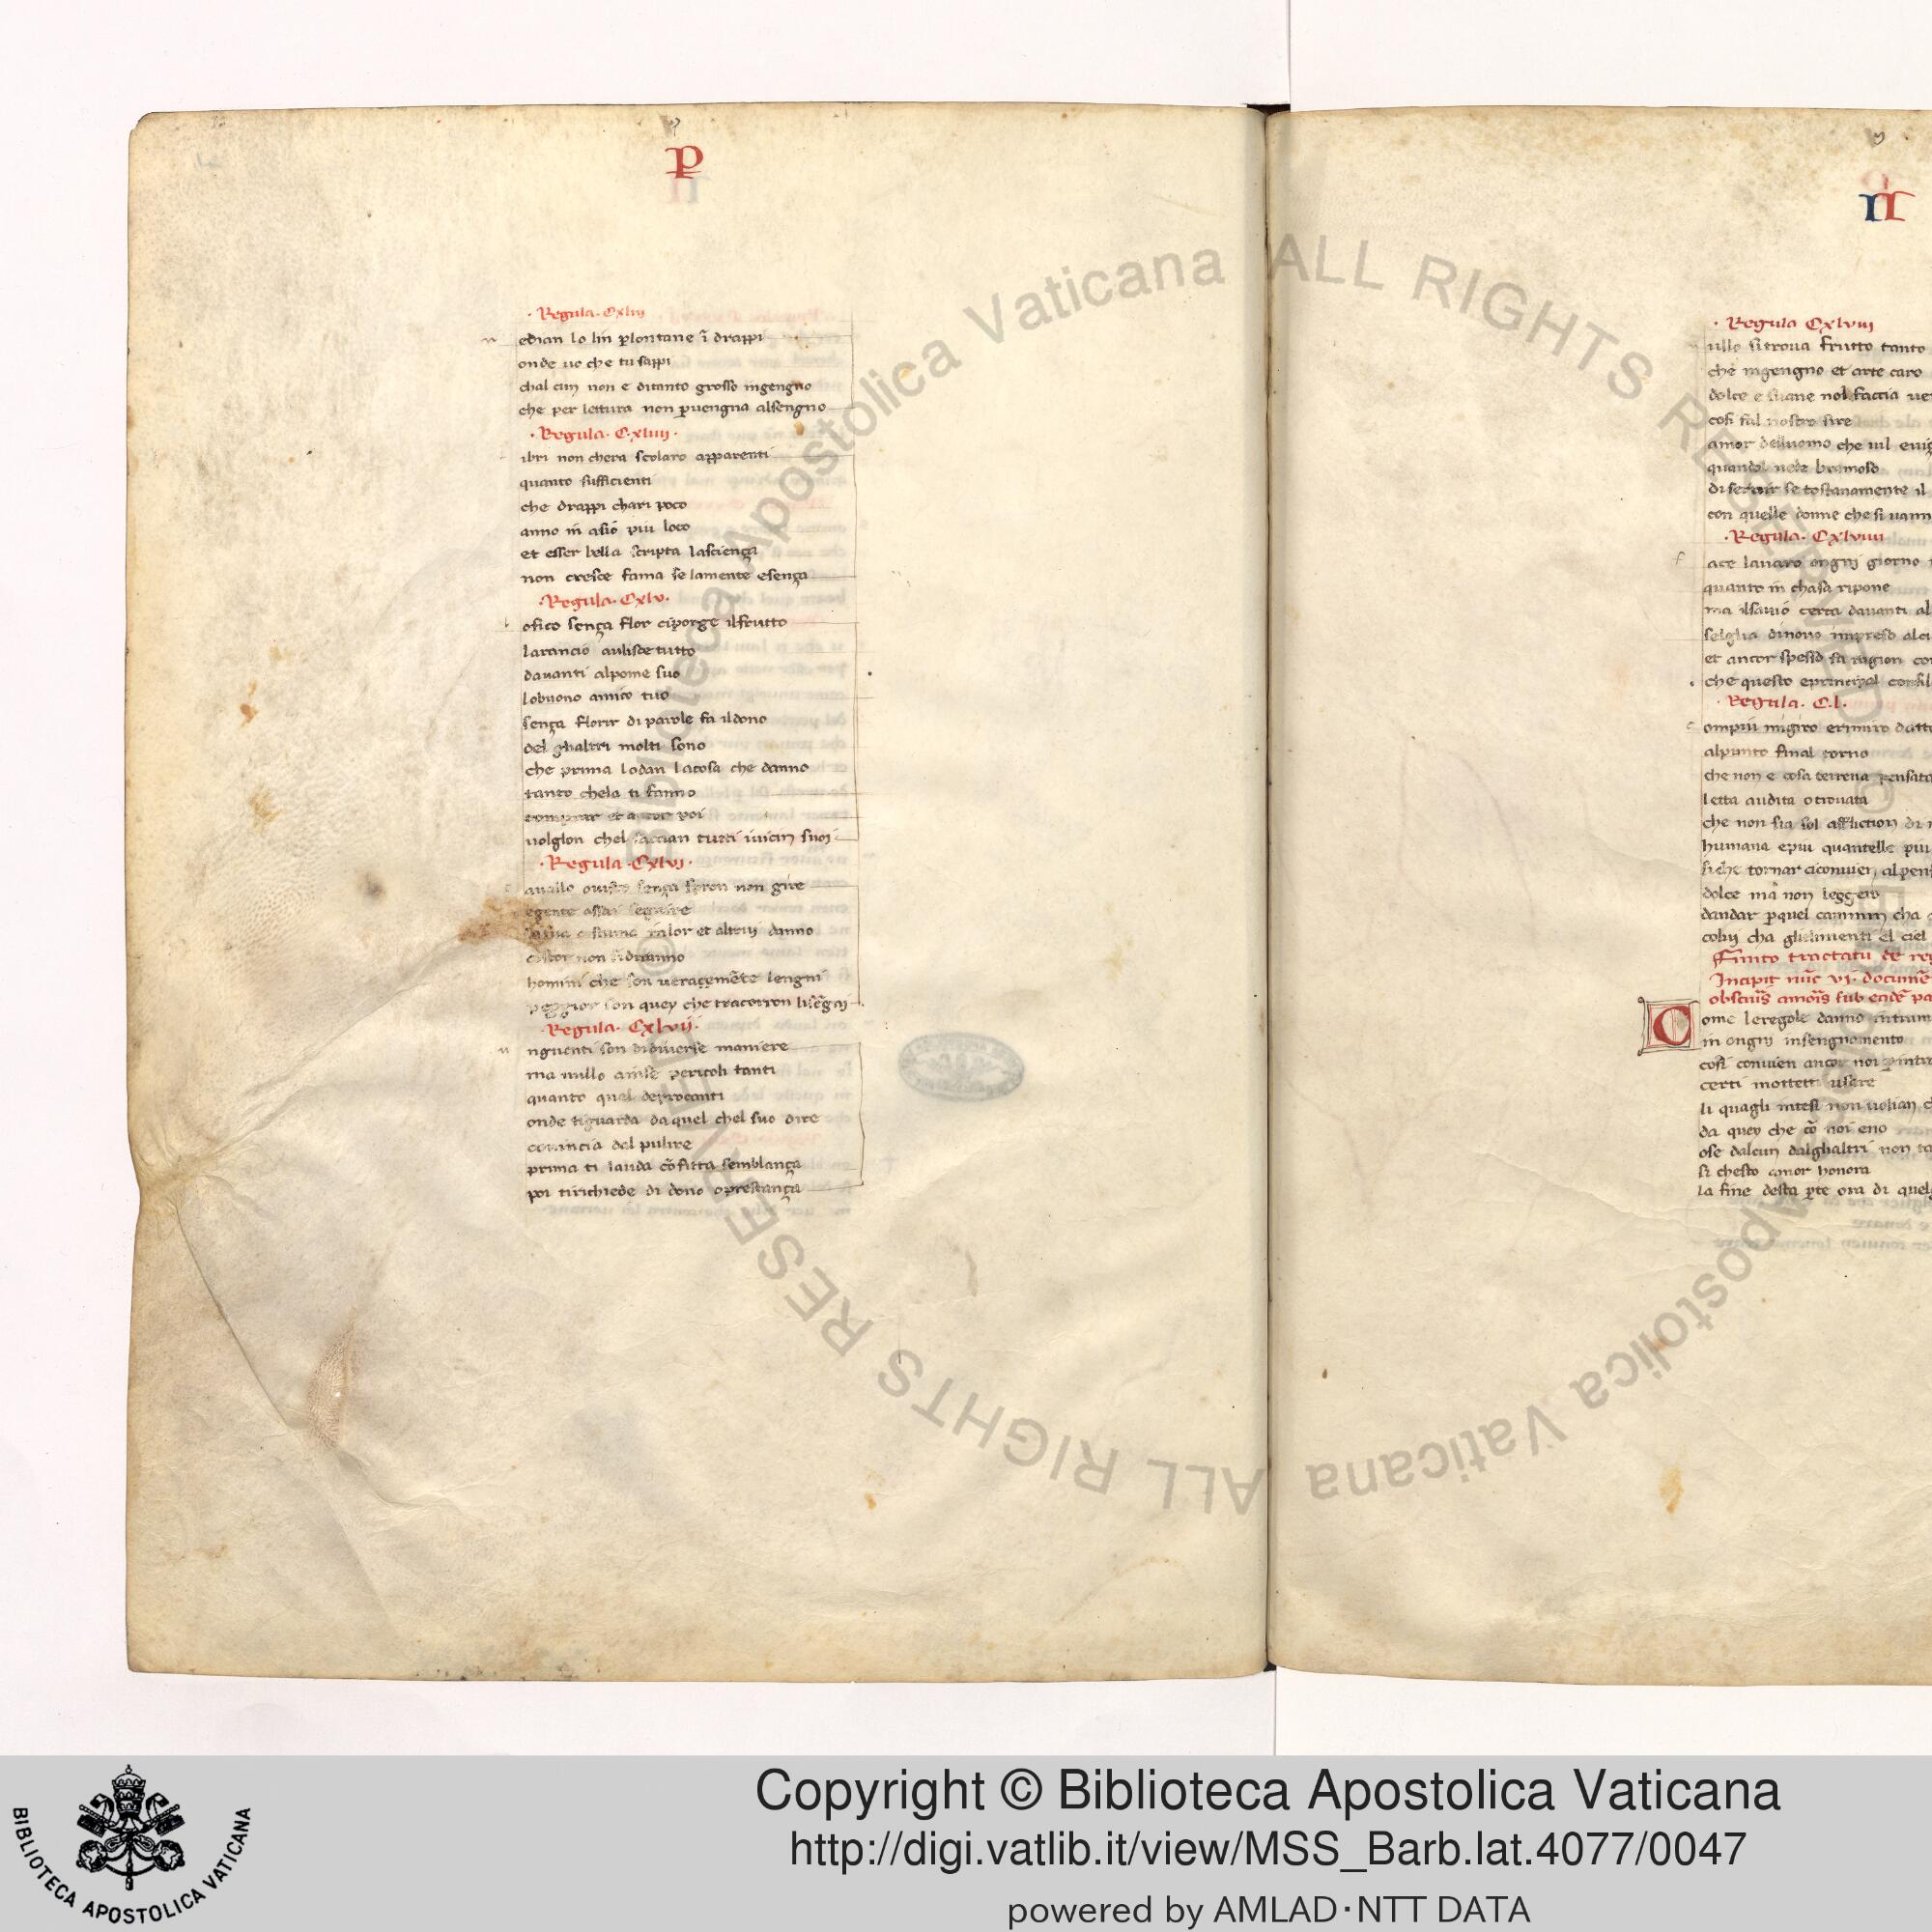 p
· Regula · Cxliij
n edian lo lin plontane ĩ drappi
onde uo che tu sappi
chal cun non e ditanto grosso ingengno
che per lettura non puengna alsengno
· Regula · C·xliiij ·
ibri non chera scolaro apparenti
quanto sufficienti
che drappi chari poco
anno in asió piu loco
et esser bella scripta lasciença
non cresce fama se lamente esença
· Regula · Cxlv ·
l ofico sença flor ciporge ilfrutto
larancio aulisce tutto
davanti alpome suo
lobuono amico tuo
sença florir di parole fa ildono
del ghaltri molti sono
che prima lodan lacosa che danno
tanto chela ti fanno
comprar et ancor poi
uolglon chel sactian tutti iuicin suoi
· Regula · Cxlvj ·
auallo ouisto sença spron non gire
egente assai seguire
valor et altrui danno
non sidiranno
homini che son ueraçemẽte lengni
peggior son quey che tracorron lisẽgni
· Regula · Cxlvij ·
u nguenti son didiuerse maniere
ma nullo amise pericoli tanti
quanto quel
onde tiguarda da quel chel suo dire
comincia dal pulire
prima ti lauda cõ fitta semblança
poi tirichiede di dono oprestança
n r
· Regula Cxlviij
ullo sitroua frutto tanto
che ingengno et arte caro
dolce e suaue nol faccia ue
cosi fal nostro sire
amor delluomo che uil
quandol uede bramoso
di seruir se tostanamente il
con quelle donne che si uann
· Regula · Cxlviiij
f ace lauaro ongnj giorno
quanto in chasa ripone
ma ilsauio certa dauanti al
selglia dinouo impreso alcu
et ancor spesso fa ragion con
che questo eprincipal consil
· Regula · C.l.
c ompiu migiro erimiro datto
alpunto final torno
che non e cosa terrena pensata
letta audita otrouata
che non sia sol affliction di
humana epiu quantelle piu
siche tornar ciconuien alpens
dolce ma non leggero
dandar pquel camminj cha
coluj cha glielimenti el ciel
Finito tractatu de reg
Incipit nũc vj · documẽ
sub eadẽ pa
C ome leregole danno
in ongnj insengnamento
cosi conuien ancor noi
certi mottetti usare
li quagli intesi non uolian
da quey che cõ noi eno
ose dalcun dalghaltri non
si chesto amor honora
la fine desta pte ora di quel
Biblioteca Apostolica Vaticana ALL RIGHTS RESERVED ©
Biblioteca Apostolica Vaticana ALL RIGHTS RESERVED ©
BIBLIOTECA APOSTOLICA VATICANA
Copyright © Biblioteca Apostolica Vaticana
http://digi.vatlib.it/view/MSS_Barb.lat.4077/0047
powered by AMLAD·NTT DATA